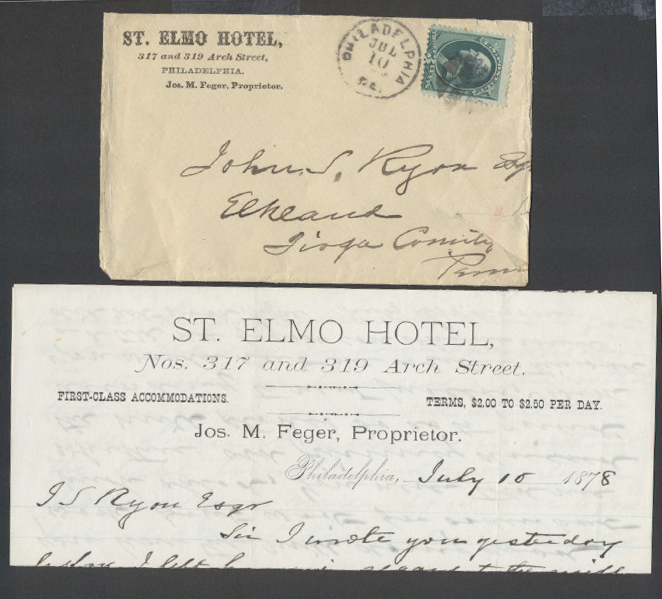 ST. ELMO HOTEL,
317 and 319 Arch Street,
PHILADELPHIA.
Jos. M. Feger, Proprietor.
PHILADELPHIA
JUL
10
PA.
John S. Ryon Esq
Elkland
Tioga County
Penn
ST. ELMO HOTEL,
Nos. 317 and 319 Arch Street.
FIRST-CLASS ACCOMMODATIONS. TERMS, $2.00 TO $2.50 PER DAY.
Jos. M. Feger, Proprietor.
Philadelphia, July 10 1878
J S Ryon Esqr
Sir I wrote you yesterday
before I left